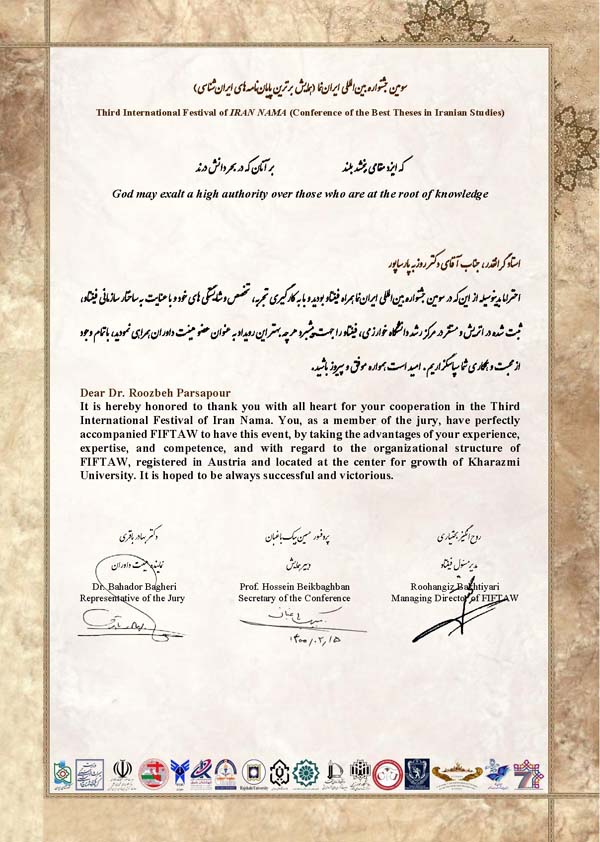 سومین جشنواره بین‌المللی ایران‌نما (همایش برترین پایان‌نامه‌های ایران‌شناسی)
Third International Festival of IRAN NAMA (Conference of the Best Theses in Iranian Studies)
بر آنان که در بحر دانش درند که ایزد مقامی ببخشد بلند
God may exalt a high authority over those who are at the root of knowledge
استاد گرانقدر، جناب آقای دکتر روزبه پارساپور
احتراما بدینوسیله از این‌که در سومین جشنواره بین‌المللی ایران‌نما همراه فیفتاو بودید و با به کارگیری تجربه، تخصص و شایستگی های خود و با عنایت به ساختار سازمانی فیفتاو،
ثبت شده در اتریش و مستقر در مرکز رشد دانشگاه خوارزمی، فیفتاو را جهت پیشبرد هرچه بهتر این رویداد به عنوان عضو هیئت داوران همراهی نمودید، با تمام وجود
از محبت و همکاری شما سپاسگزاریم. امید است همواره موفق و پیروز باشید.
Dear Dr. Roozbeh Parsapour
It is hereby honored to thank you with all heart for your cooperation in the Third
International Festival of Iran Nama. You, as a member of the jury, have perfectly
accompanied FIFTAW to have this event, by taking the advantages of your experience,
expertise, and competence, and with regard to the organizational structure of
FIFTAW, registered in Austria and located at the center for growth of Kharazmi
University. It is hoped to be always successful and victorious.
دکتر بهادر باقری پروفسور حسین بیک باغبان روح انگیز بختیاری
نماینده هیئت داوران دبیر همایش مدیرمسئول فیفتاو
Dr. Bahador Bagheri Prof. Hossein Beikbaghban Roohangiz Bakhtiyari
Representative of the Jury Secretary of the Conference Managing Director of FIFTAW
۱۴۰۰/۰۲/۱۵